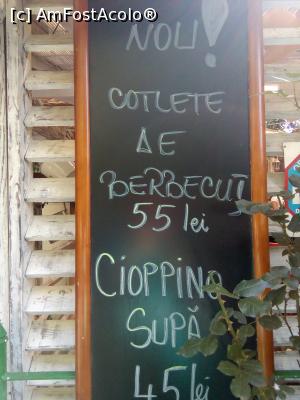 [c] AmFostAcolo®
NOU!
COTLETE
DE
BERBECUȚ
55 lei
CIOPPINO
SUPĂ
45 lei